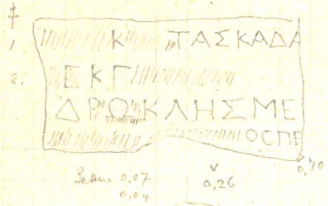 Κ ΤΑΣΚΑΔΑ
ΕΚΓ
ΔΡΩΚΛΗΣΜΕ
ΟΣΠΕ
0,07
0,04
0,26
0,70